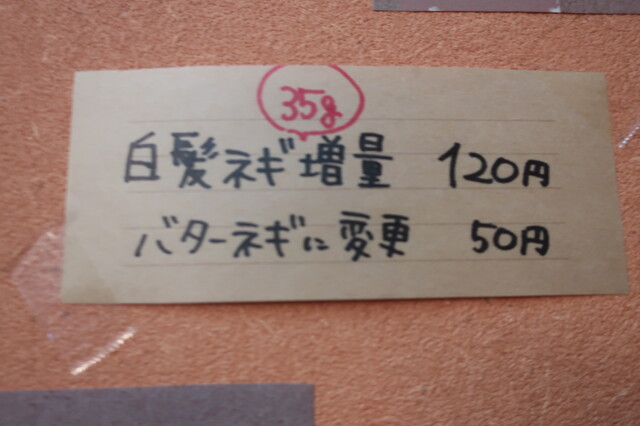 35g
白髪ネギ増量 120円
バターネギに変更 50円